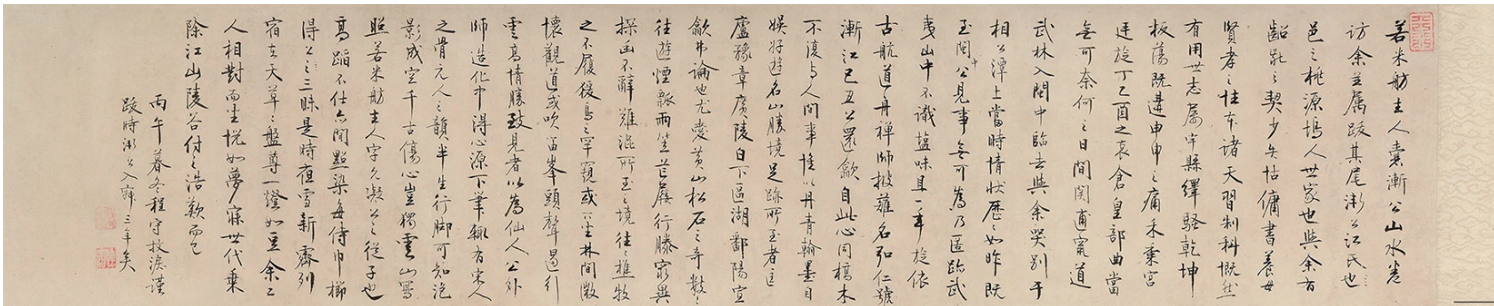 若米舫主人賷漸公山水卷
訪余並屬跋其尾漸公江氏也
邑之桃源塢人世家也與余有
齠齔之契少失怙傭書養母
賢孝之性本諸天習制科慨然
有用世志屬宇縣繹騷乾坤
板蕩既遘申申之痛禾黍宮
廷旋丁乙酉之哀倉皇部曲當
無可奈何之日間關甫竄道
武林入閩中臨去與余哭別于
相公潭上當時情狀歷歷如昨既
至閩中公見事無可為乃匿跡武
夷山中不識鹽味且一年旋依
古航道舟禪師披薙名弘仁號
漸江己丑公還歙自此心同槁木
不復與人間事惟以丹青翰墨自
娛好遊名山勝境足跡所至者匡
廬豫章廣陵白下區湖鄱陽宣
歙弗論也尤愛黃山松石之奇數數
往遊煙瓢雨笠芒屩行滕窮
探幽不辭所至之境往往樵牧
之不履猨鳥之罕窺或坐林間
懷觀道或吹笛峯頭聲遏行
雲高情勝致見者以為仙人公外
師造化中得心源下筆輒有宋人
之骨元人之韻半生行腳可知泡
影成空千古傷心豈獨雲山寫
照若米舫主人字允凝公之從子也
高蹈不仕亦閒點染每侍巾櫛
得公之三昧是時夜雪新霽列
宿在天草草盤尊一燈如豆余二
人相對而坐恍如夢寐世代乘
除江山陵谷付之浩歎而已
丙午暮冬程守抆淚謹
跋時漸公入寂三年矣